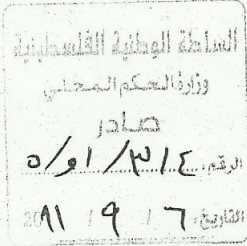 السلطة الوطنية الفلسطينية
وزارة الحكم المحلي
صادر
الرقم: ٣١٤/ ١و/ ٥
التاريخ: ٦ / ٩ / ٢٠١١